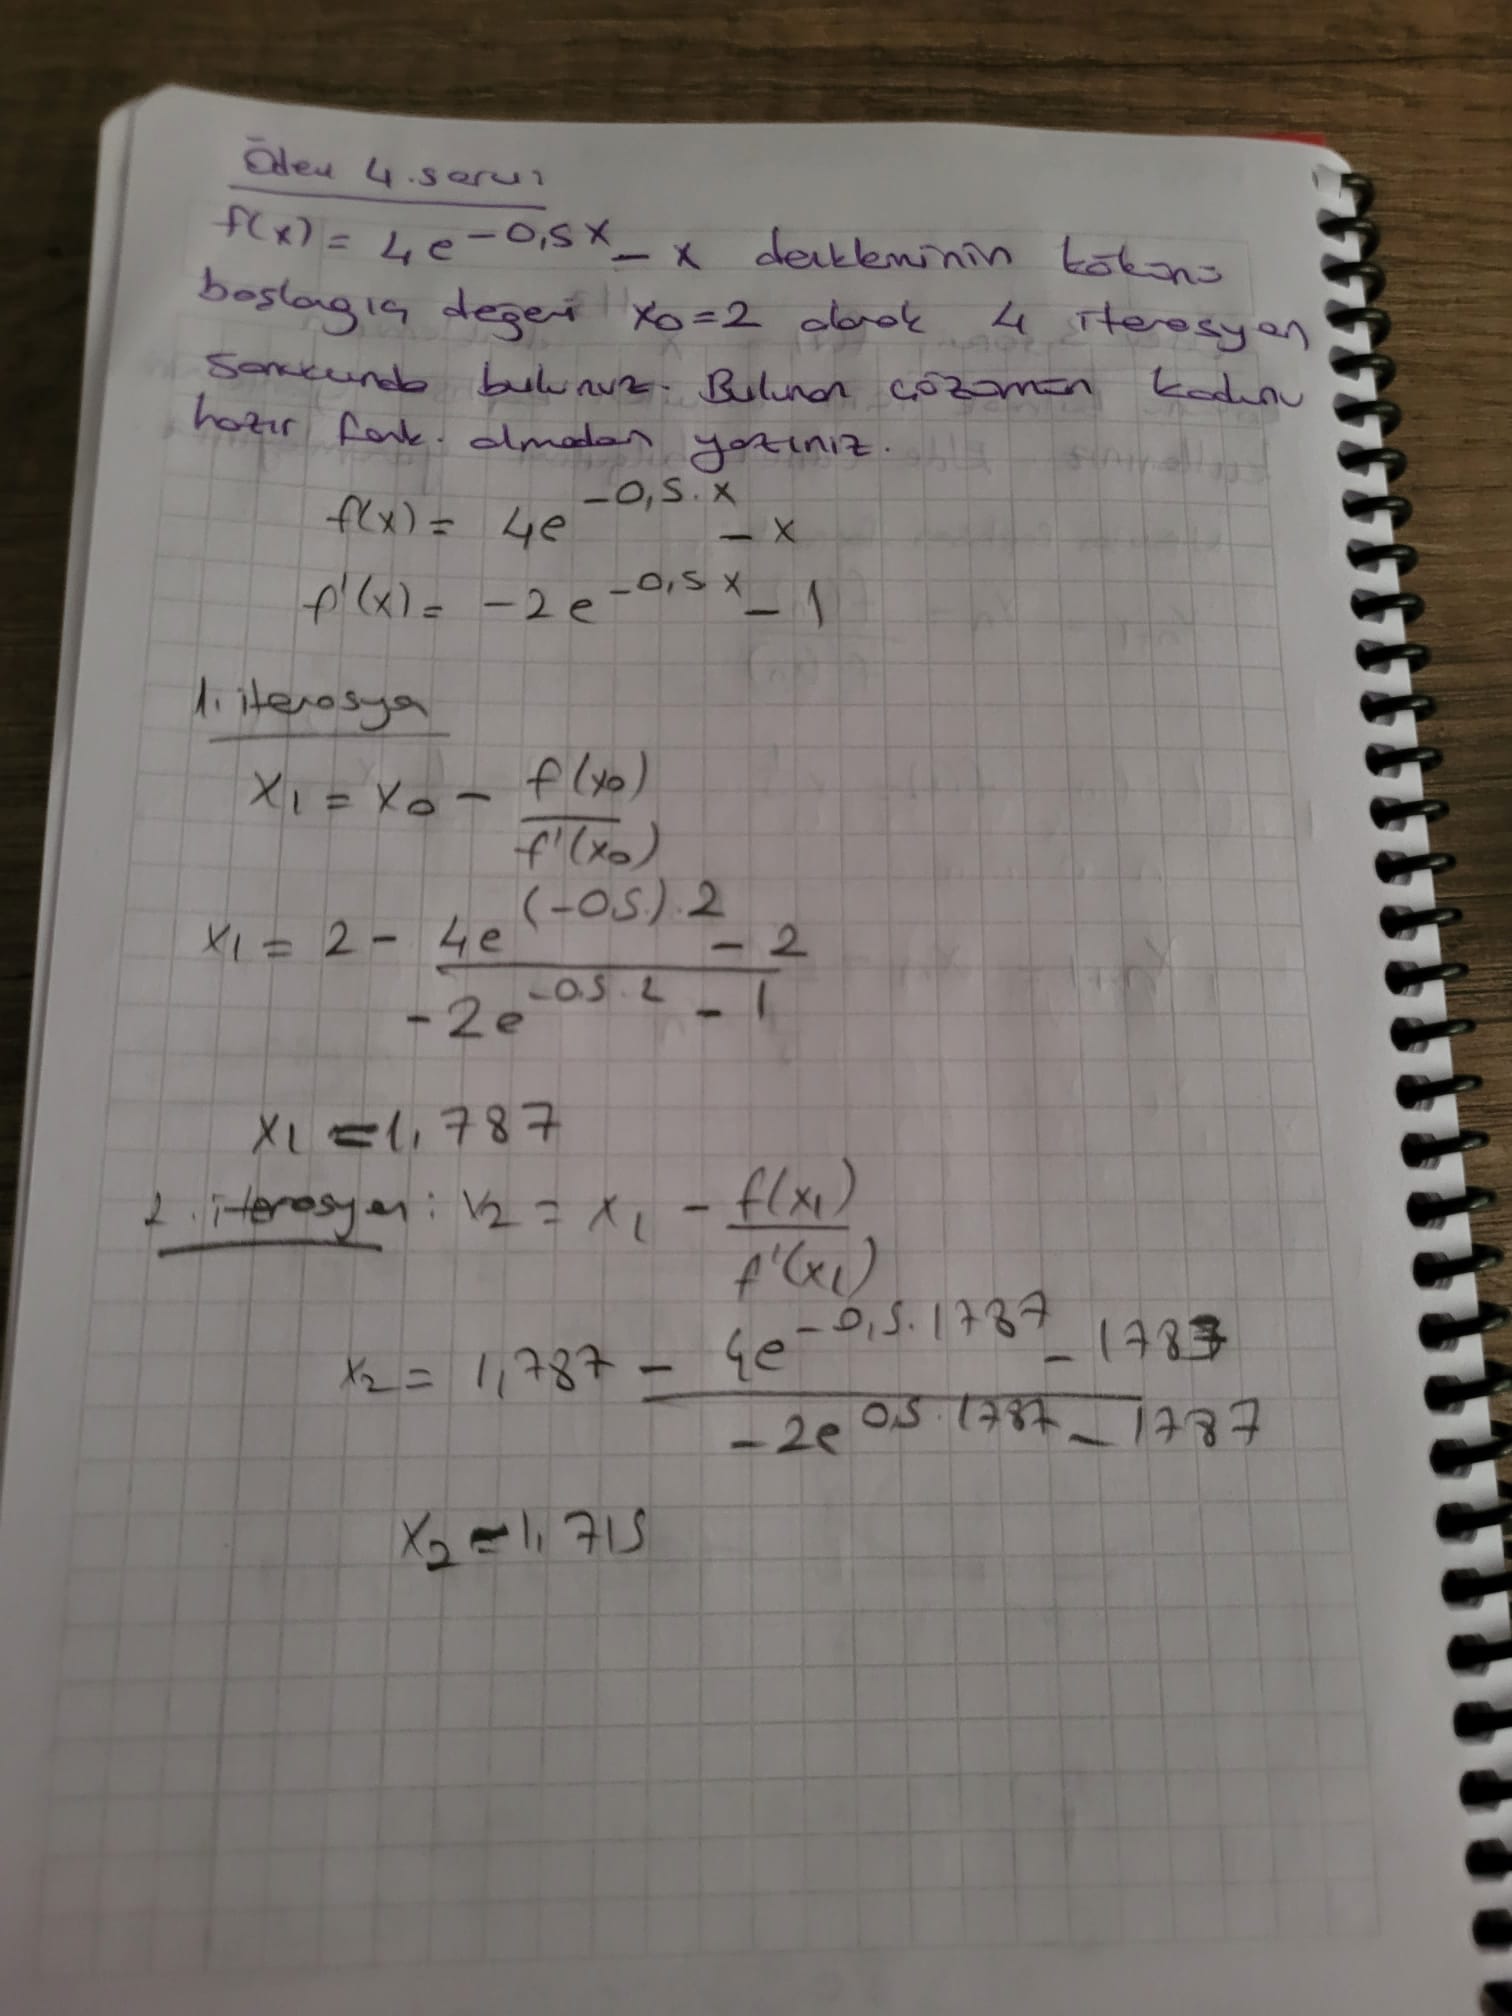 Ödev 4. soru
f(x) = 4e^-0,5x - x denkleminin kökünü
başlangıç değeri x0=2 olarak 4 iterasyon
sonucunda bulunuz. Bulunan çözümün kodunu
hazır fonk. olmadan yazınız.
f(x) = 4e^-0,5.x - x
f'(x) = -2e^-0,5x - 1
1. iterasyon
x1 = x0 - f(x0)/f'(x0)
x1 = 2 - (4e^(-05.).2 - 2)/(-2e^-0.5.2 - 1)
x1 = 1,787
2. iterasyon: x2 = x1 - f(x1)/f'(x1)
x2 = 1,787 - (4e^-0,5.1787 - 1787)/(-2e^0.5.1787 - 1787)
x2 = 1,715